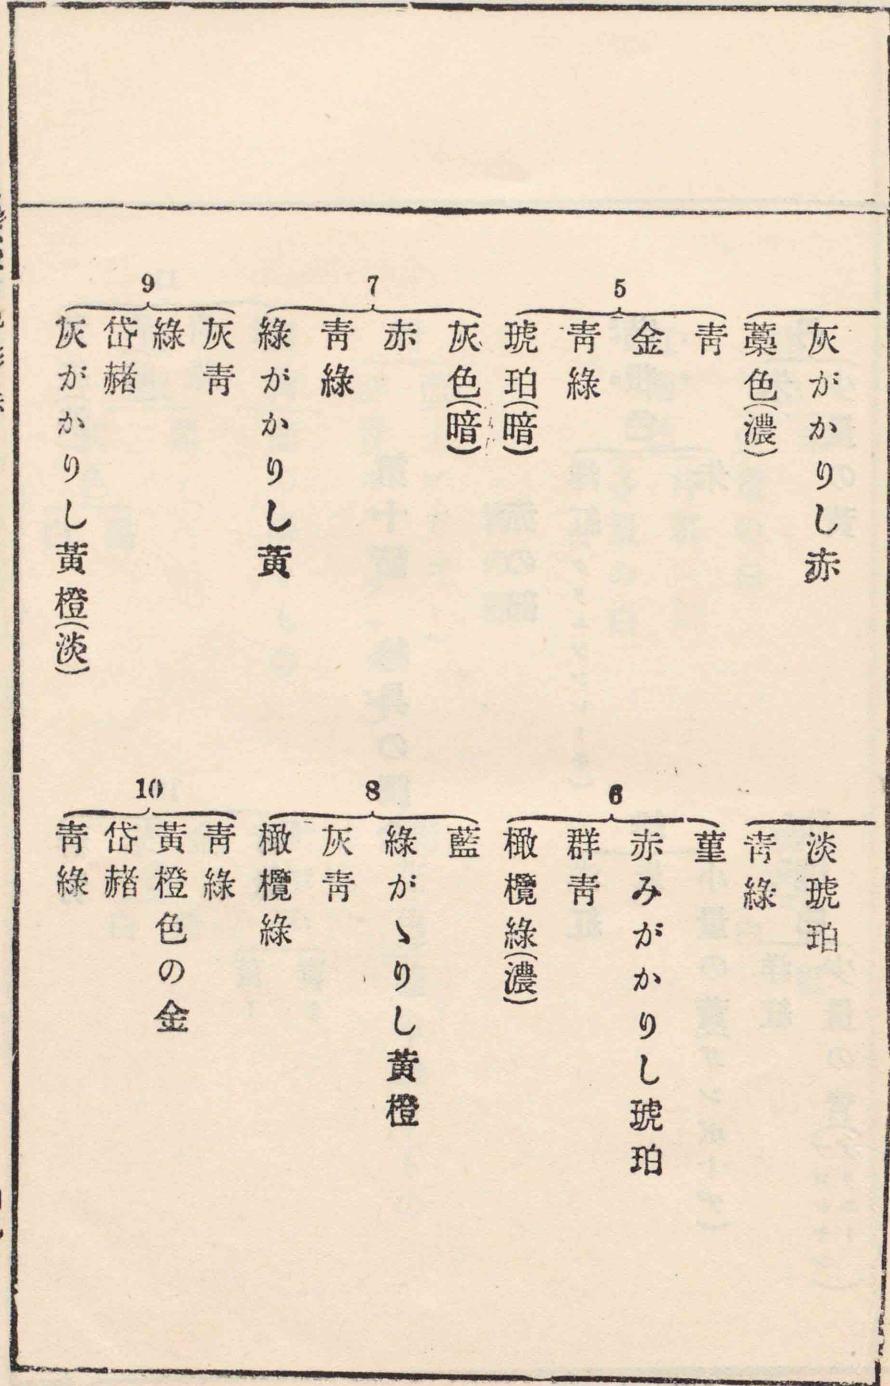 灰がかりし赤
藁色(濃)
5
青
金
青綠
琥珀(暗)
7
灰色(暗)
赤
青綠
綠がかりし黃
9
灰青
綠
岱赭
灰がかりし黃橙(淡)
淡琥珀
青綠
6
菫
赤みがかりし琥珀
群青
橄欖綠(濃)
8
藍
綠がゝりし黃橙
灰青
橄欖綠
10
青綠
黃橙色の金
岱赭
青綠